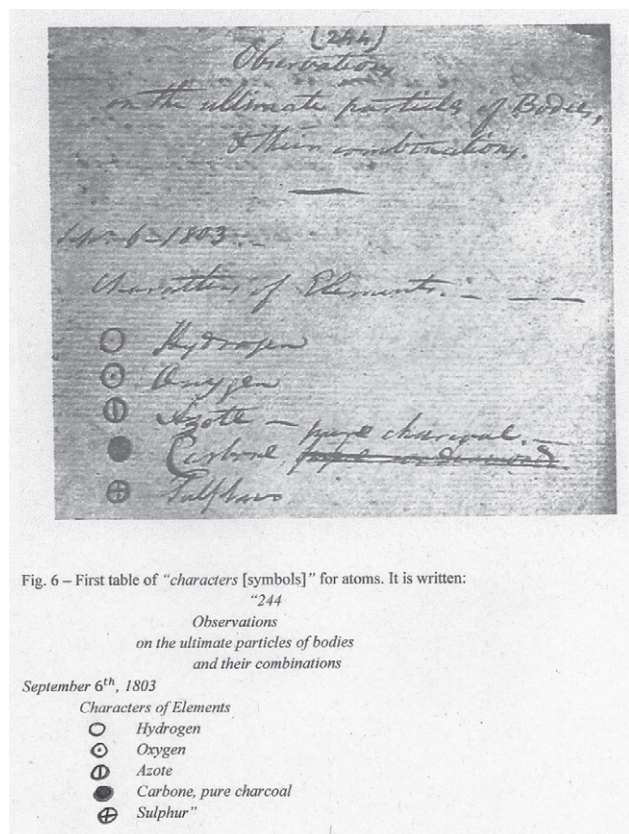 (244)
Observations
on the ultimate particles of Bodies,
& their combinations.
1803
Characters of Elements.
Hydrogen
Oxygen
Azote – pure charcoal.
Carbone,
Sulphur
Fig. 6 – First table of “characters [symbols]” for atoms. It is written:
“244
Observations
on the ultimate particles of bodies
and their combinations
September 6th, 1803
Characters of Elements
Hydrogen
Oxygen
Azote
Carbone, pure charcoal
Sulphur”